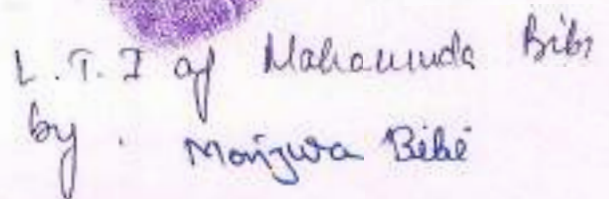 L.T.I of Mahamuda Bibi
by. Monjura Bibi